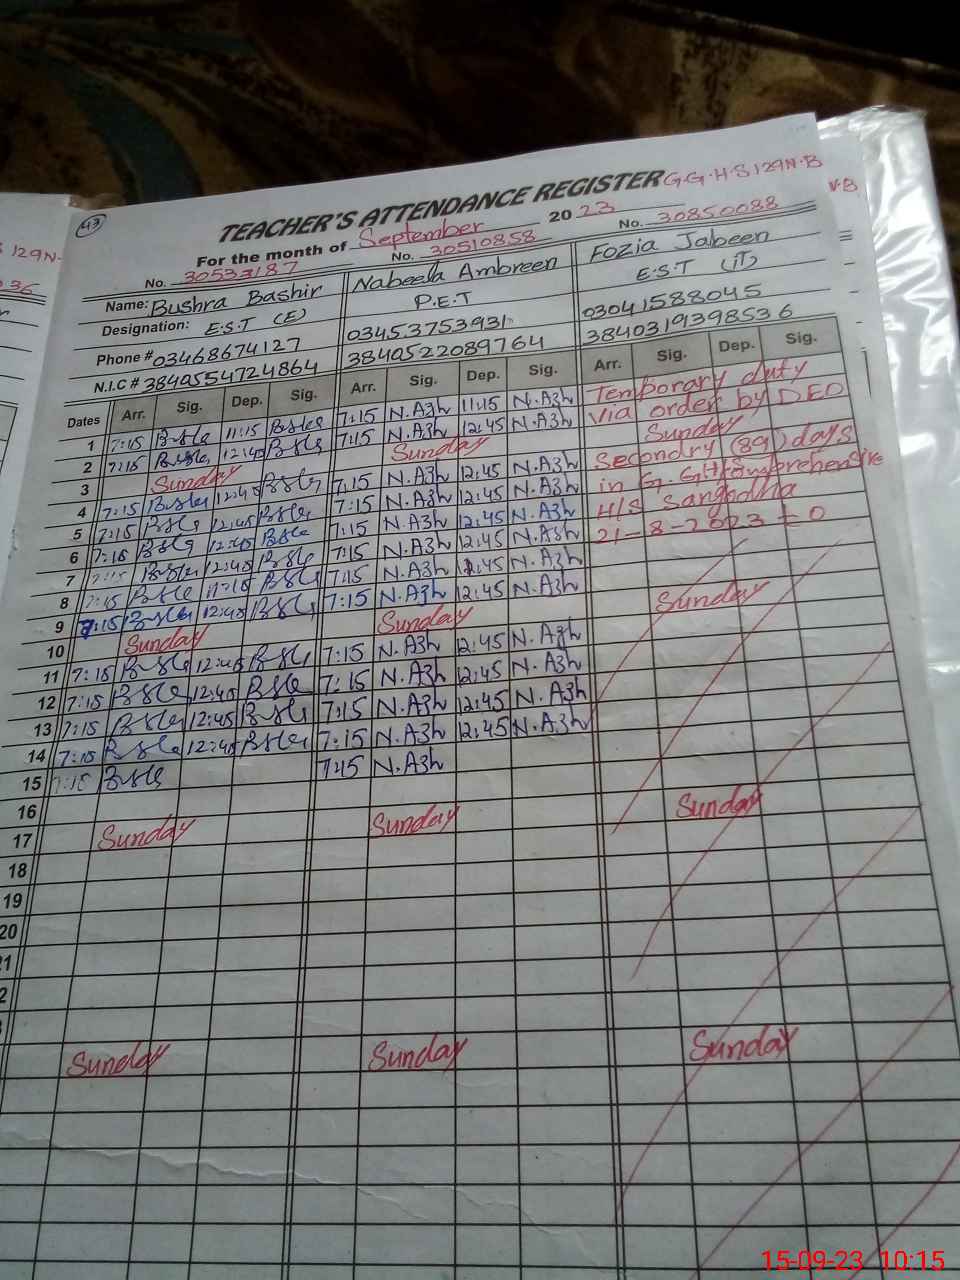 43
TEACHER'S ATTENDANCE REGISTER G.G.H.S 129 N.B
For the month of September 2023
No. 30533187 No. 30510858 No. 30850088
Name: Bushra Bashir Nabeela Ambreen Fozia Jabeen
Designation: E.S.T (E) P.E.T E.S.T (IT)
Phone # 03468674127 03453753931 03041588045
N.I.C # 3840554724864 3840522089764 3840319398536
Dates Arr. Sig. Dep. Sig. Arr. Sig. Dep. Sig. Arr. Sig. Dep. Sig.
1 7:15 11:15 7:15 N.A3h 11:15 N.A3h Temporary duty
2 7:15 12:45 7:15 N.A3h 12:45 N.A3h via order by DEO
3 Sunday Sunday Sunday
4 7:15 12:45 7:15 N.A3h 12:45 N.A3h Secondry (89) days
5 7:15 12:45 7:15 N.A3h 12:45 N.A3h in G.G.H Comprehensive
6 7:15 12:45 7:15 N.A3h 12:45 N.A3h H/S Sargodha
7 7:15 12:45 7:15 N.A3h 12:45 N.A3h 21-8-2023 to
8 7:15 7:15 N.A3h 12:45 N.A3h
9 7:15 12:45 7:15 N.A3h 12:45 N.A3h
10 Sunday Sunday Sunday
11 7:15 12:45 7:15 N.A3h 12:45 N.A3h
12 7:15 12:45 7:15 N.A3h 12:45 N.A3h
13 7:15 12:45 7:15 N.A3h 12:45 N.A3h
14 7:15 12:45 7:15 N.A3h 12:45 N.A3h
15 7:15 7:15 N.A3h
16
17 Sunday Sunday Sunday
18
19
20
Sunday Sunday Sunday
129N.
36
N.B
15-09-23 10:15